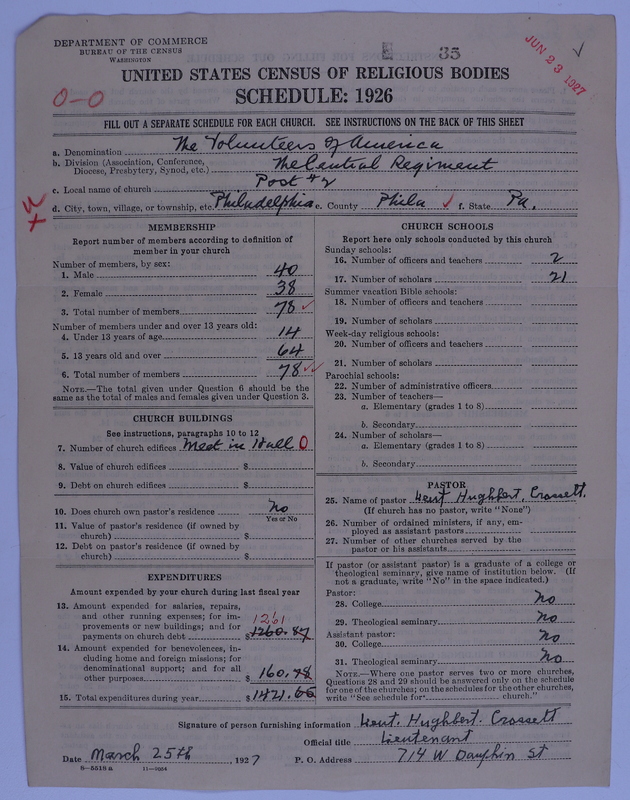 DEPARTMENT OF COMMERCE
BUREAU OF THE CENSUS
WASHINGTON
35
JUN 23 1927
UNITED STATES CENSUS OF RELIGIOUS BODIES
SCHEDULE: 1926
0-0
FILL OUT A SEPARATE SCHEDULE FOR EACH CHURCH. SEE INSTRUCTIONS ON THE BACK OF THIS SHEET
a. Denomination The Volunteers of America
b. Division (Association, Conference, Diocese, Presbytery, Synod, etc.) The Central Regiment
c. Local name of church Post #2
d. City, town, village, or township, etc. Philadelphia e. County Phila f. State Pa.
MEMBERSHIP
Report number of members according to definition of
member in your church
Number of members, by sex:
1. Male 40
2. Female 38
3. Total number of members 78
Number of members under and over 13 years old:
4. Under 13 years of age 14
5. 13 years old and over 64
6. Total number of members 78
NOTE.—The total given under Question 6 should be the
same as the total of males and females given under Question 3.
CHURCH BUILDINGS
See instructions, paragraphs 10 to 12
7. Number of church edifices Meet in Hall 0
8. Value of church edifices $
9. Debt on church edifices $
10. Does church own pastor's residence No
Yes or No
11. Value of pastor's residence (if owned by
church) $
12. Debt on pastor's residence (if owned by
church) $
EXPENDITURES
Amount expended by your church during last fiscal year
13. Amount expended for salaries, repairs,
and other running expenses; for im-
provements or new buildings; and for
payments on church debt $1260.87
1261
14. Amount expended for benevolences, in-
cluding home and foreign missions; for
denominational support; and for all
other purposes $160.78
15. Total expenditures during year $1421.65
CHURCH SCHOOLS
Report here only schools conducted by this church
Sunday schools:
16. Number of officers and teachers 2
17. Number of scholars 21
Summer vacation Bible schools:
18. Number of officers and teachers
19. Number of scholars
Week-day religious schools:
20. Number of officers and teachers
21. Number of scholars
Parochial schools:
22. Number of administrative officers
23. Number of teachers—
a. Elementary (grades 1 to 8)
b. Secondary
24. Number of scholars—
a. Elementary (grades 1 to 8)
b. Secondary
PASTOR
25. Name of pastor Lieut Hughbert. Crossett.
(If church has no pastor, write "None")
26. Number of ordained ministers, if any, em-
ployed as assistant pastors
27. Number of other churches served by the
pastor or his assistants
If pastor (or assistant pastor) is a graduate of a college or
theological seminary, give name of institution below. (If
not a graduate, write "No" in the space indicated.)
Pastor:
28. College No
29. Theological seminary No
Assistant pastor:
30. College No
31. Theological seminary No
NOTE.—Where one pastor serves two or more churches,
Questions 28 and 29 should be answered only on the schedule
for one of the churches; on the schedules for the other churches,
write "See schedule for church."
Signature of person furnishing information Lieut. Hughbert. Crossett
Official title Lieutenant
Date March 25th, 1927 P. O. Address 714 W Dauphin St
8—5518a 11—9064